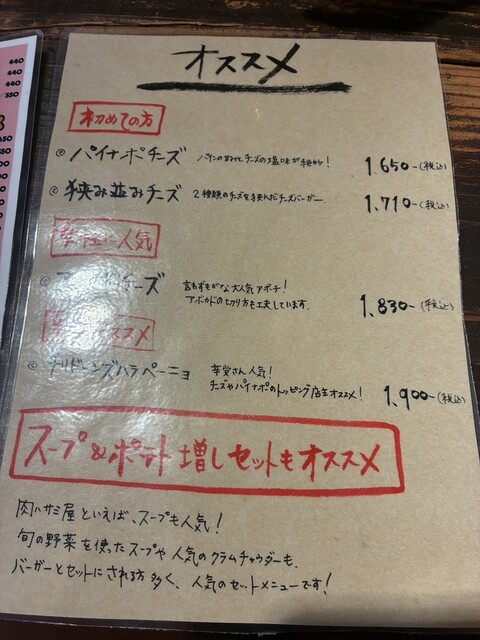 440
440
440
550
オススメ
初めての方
◎ パイナポチーズ パインの甘みとチーズの塩味が絶妙! 1.650-(税込)
◎ 狭み並みチーズ 2種類のチーズを挟んだチーズバーガー 1.710-(税込)
女性に人気
◎ チーズ 言わずもがな大人気アボチ!
アボカドの切り方も工夫しています. 1.830-(税込)
オススメ
◎ チリドーンズハラペーニョ 芋党さん人気!
チーズやパイナポのトッピング店主オススメ! 1.900-(税込)
スープ&ポテト増しセットもオススメ
肉ハサミ屋といえば、スープも人気!
旬の野菜を使ったスープや人気のクラムチャウダーも.
バーガーとセットにされる方多く、人気のセットメニューです!